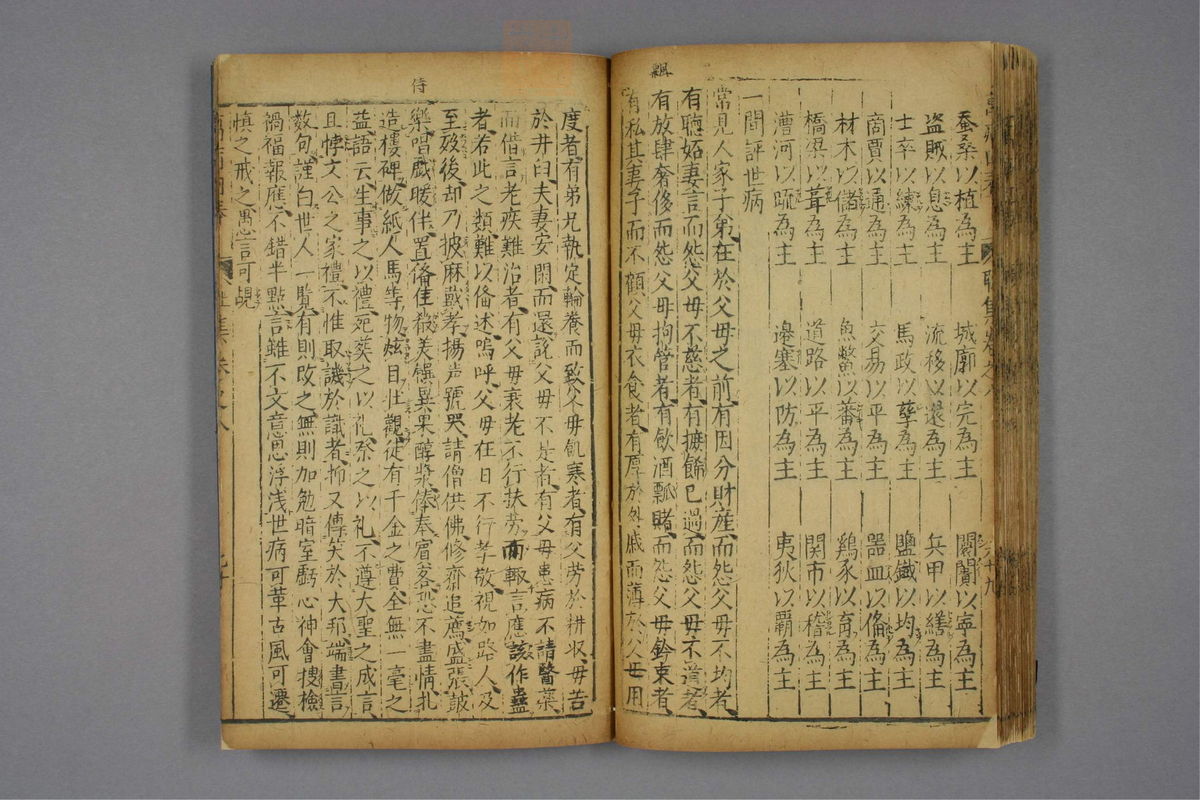 飄
蚕桑以植為主　城廓以完為主　闤闠以寧為主
盜賊以息為主　流移以還為主　兵甲以繕為主
士卒以練為主　馬政以孳為主　鹽鐵以均為主
商賈以通為主　交易以平為主　器皿以俻為主
材木以儲為主　魚鱉以蕃為主　鷄豕以育為主
橋梁以葺為主　道路以平為主　関市以稽為主
漕河以疏為主　邊塞以防為主　夷狄以覇為主
一問評世病
常見人家子弟在於父母之前有因分財産而怨父母不均者
有聴妬妻言而怨父母不慈者有掩餙巳過而怨父母不善者
有放肆奢侈而怨父母拘管者有飲酒瓢賭而怨父母鈐束者
有私其妻子而不顧父母衣食者有厚於外戚而薄於父母用
侍
度者有弟兄執定輪養而致父母飢寒者有父劳於耕収母苦
於井臼夫妻安閑而還說父母不是者有父母患病不請醫藥
而偕言老疾難治者有父母衰老不行扶劳而輙言應該作蛊
者若此之類難以俻述嗚呼父母在日不行孝敬視如路人及
至歿後却乃披麻戴孝揚声號哭請僧供佛修齋追薦盛張鼓
樂唱戯暖伴置俻佳殽美饌異果醇漿俸奉賔客恐不盡情扎
造樓碑做紙人馬等物炫目壮觀徒有千金之費全無一毫之
益語云生事之以禮死葵之以礼祭之以礼不遵大聖之成言
且悖文公之家禮不惟取譏於識者抑又傳笑於大邦端書言
数句謹白世人一覧有則改之無則加勉暗室虧心神會搜檢
禍福報應不錯半點言雖不文意思浮浅世病可革古風可還
慎之戒之愚言可覘